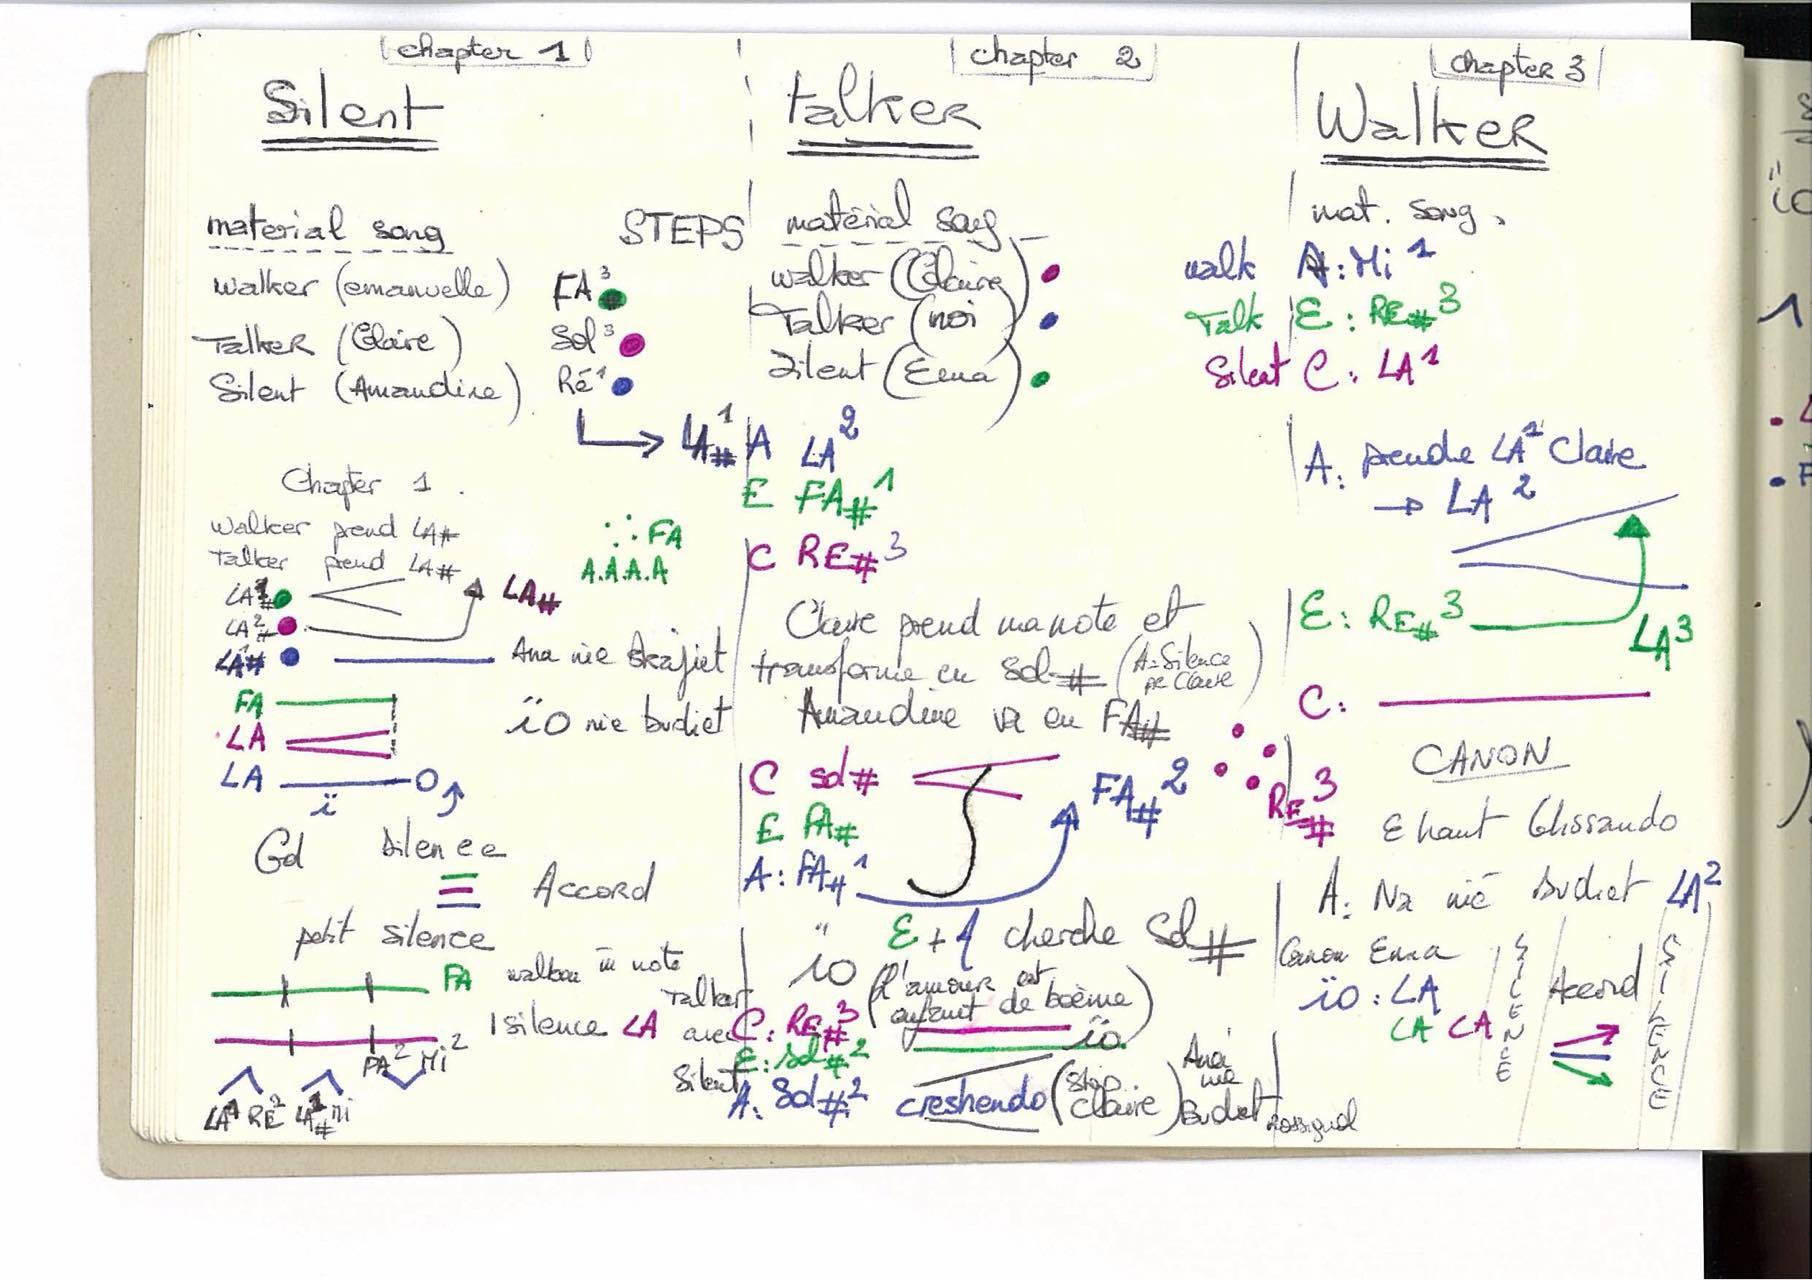 chapter 1
Silent
material song
STEPS
walker (emanuelle) FA³
Talker (Claire) Sol³
Silent (Amandine) Ré¹
LA#¹
Chapter 1.
walker prend LA#
Talker prend LA#
FA
A.A.A.A
LA#
LA#²
LA#
LA#
Ana nie
FA
LA
ïo nie budiet
LA
ï
O
Gd silence
Accord
petit silence
FA
note
1 silence LA
FA² Mi²
LA RE² LA# Mi
chapter 2
talker
matérial song
walker (Claire)
Talker (moi)
Silent (Emma)
A LA²
E FA#¹
C RE#³
Claire prend ma note et
transforme en Sol# (A=Silence
Claire)
Amandine va en FA#
C sol#
FA#²
E FA#
A: FA#¹
E + A cherche Sol#
ïo
(l'amour est
enfant de boème)
Talker avec C: RE#³
ïo
E: Sol#²
Silent A: Sol#²
creshendo (stop Claire)
Ana nie Budiet
chapter 3
Walker
mat. song.
walk A: Mi¹
Talk E: RE#³
Silent C: LA¹
A: prendre LA¹ Claire
→ LA²
E: RE#³
LA³
C:
CANON
RE#³
E haut Glissando
A: Na nie budiet LA²
Canon Emma
ïo: LA
LA LA
SILENCE
Accord
SILENCE